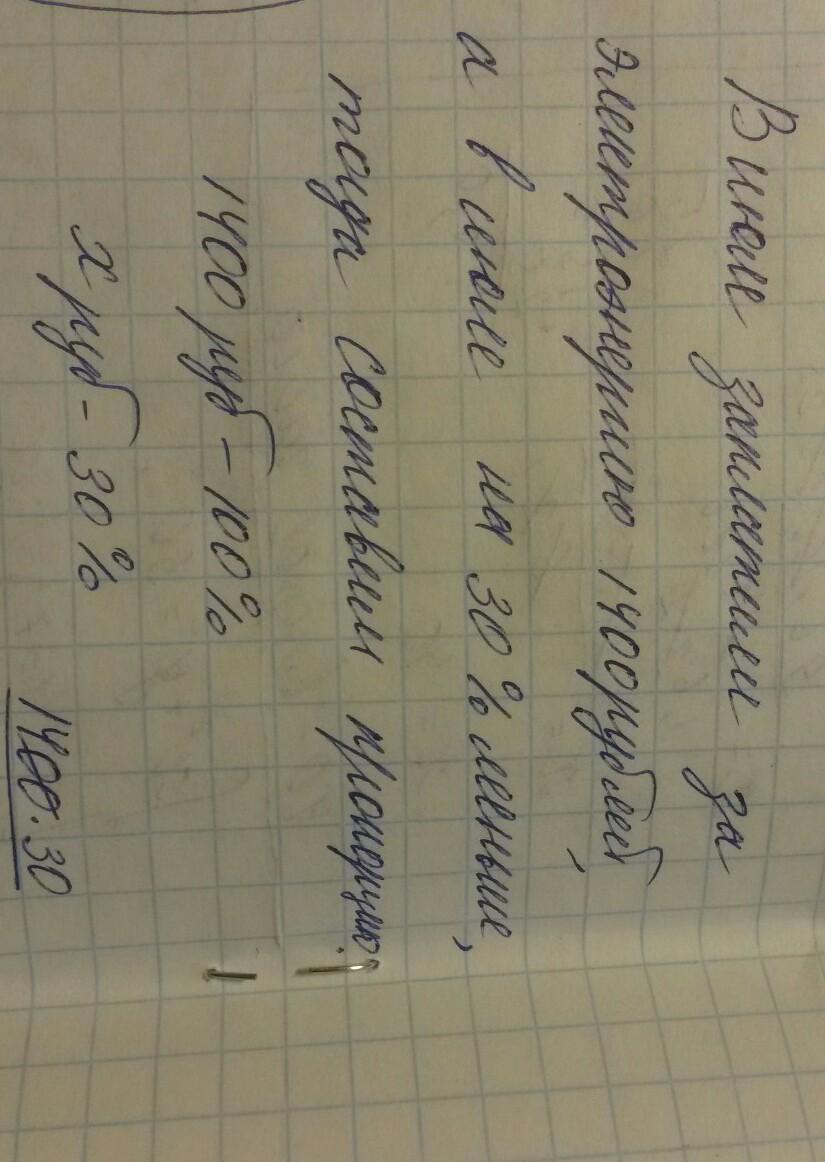 В июле заплатили за
электроэнергию 1400 рублей,
а в июле на 30% меньше,
тогда составим пропорцию.
1400 руб - 100%
х руб - 30%
1400 · 30